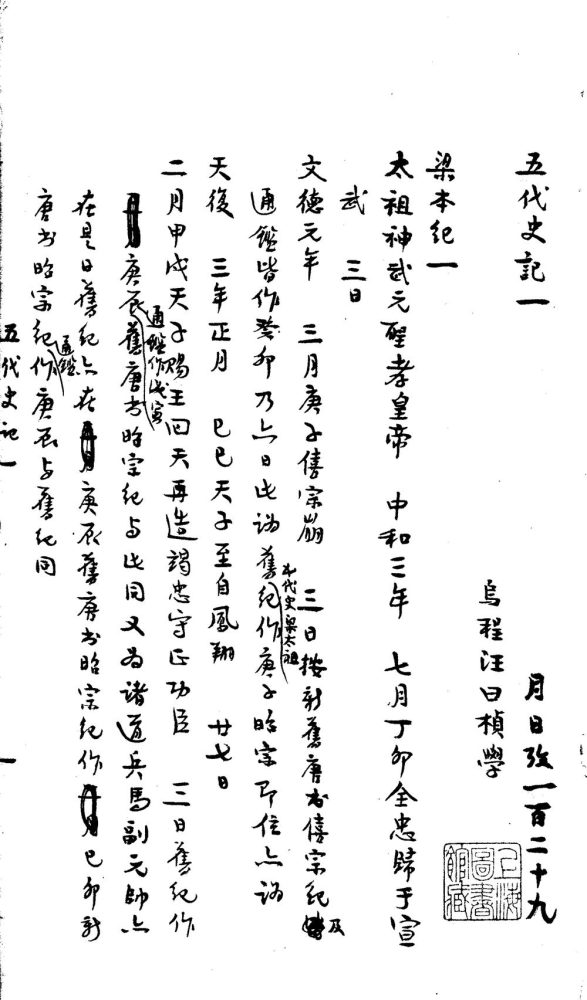 五代史記一
月日攷一百二十九
烏程汪曰楨學
梁本紀一
太祖神武元聖孝皇帝 中和三年 七月丁卯全忠歸于宣
武 三日
文德元年 三月庚子僖宗崩 三日按新舊唐書僖宗紀及
通鑑皆作癸卯乃六日此誤舊五代史梁太祖紀作庚子昭宗即位亦誤
天復 三年正月 己巳天子至自鳳翔 廿七日
二月甲戌天子賜王回天再造竭忠守正功臣 三日舊紀作
庚辰通鑑作戊寅舊唐書昭宗紀与此同又為諸道兵馬副元帥亦
在是日舊紀亦在庚辰舊唐書昭宗紀作己卯新
唐書昭宗紀通鑑作庚辰与舊紀同
五代史記一
一
上海圖書館藏